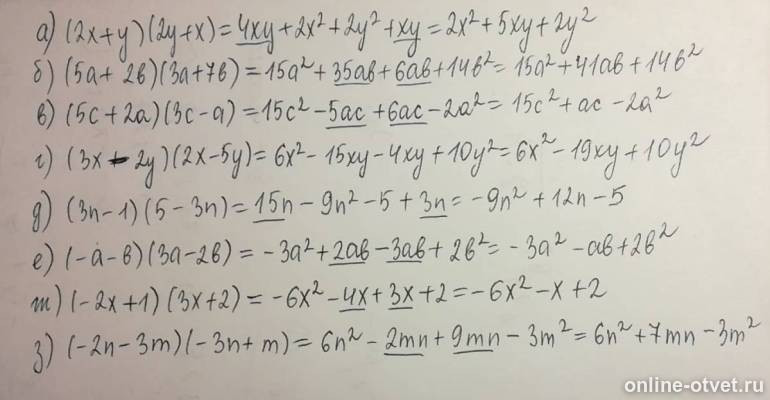 а) (2x+y)(2y+x)=4xy+2x²+2y²+xy=2x²+5xy+2y²
б) (5a+2в)(3a+7в)=15a²+35aв+6aв+14в²=15a²+41aв+14в²
в) (5c+2a)(3c-a)=15c²-5ac+6ac-2a²=15c²+ac-2a²
г) (3x-2y)(2x-5y)=6x²-15xy-4xy+10y²=6x²-19xy+10y²
д) (3n-1)(5-3n)=15n-9n²-5+3n=-9n²+12n-5
е) (-a-в)(3a-2в)=-3a²+2aв-3aв+2в²=-3a²-aв+2в²
ж) (-2x+1)(3x+2)=-6x²-4x+3x+2=-6x²-x+2
з) (-2n-3m)(-3n+m)=6n²-2mn+9mn-3m²=6n²+7mn-3m²
online-otvet.ru